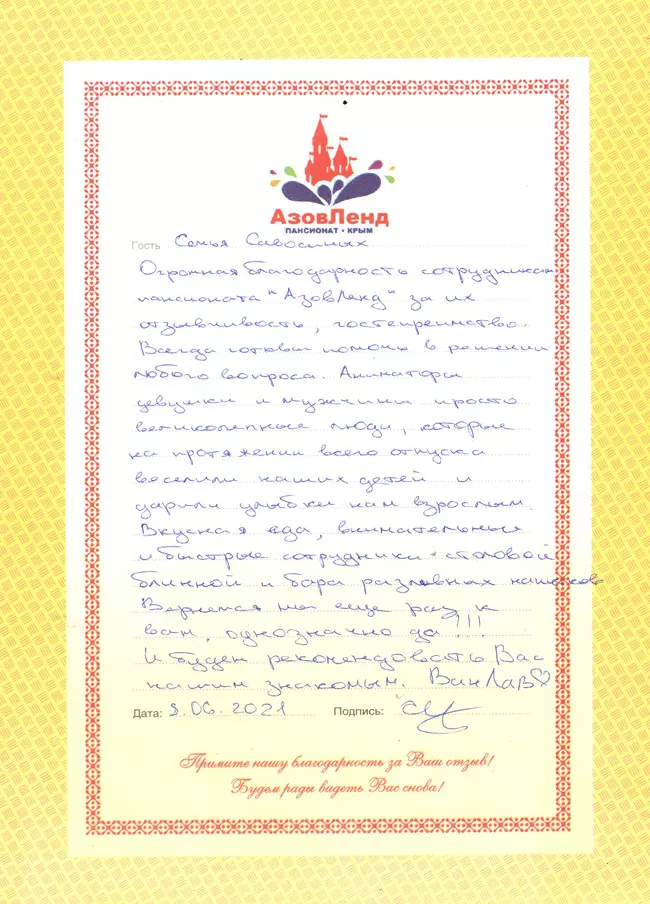 АзовЛенд
ПАНСИОНАТ • КРЫМ
Гость Семья Савосиных
Огромная благодарность сотрудникам
пансионата "АзовЛенд" за их
отзывчивость, гостепреимство.
Всегда готовы помочь в решении
любого вопроса. Аниматоры
девушки и мужчины просто
великолепные люди, которые
на протяжении всего отпуска
веселили наших детей и
дарили улыбки нам взрослым.
Вкусная еда, внимательные
и быстрые сотрудники столовой
блинной и бара разливных напитков
Вернемся мы еще раз к
вам, однозначно да!!!
И будем рекомендовать Вас
нашим знакомым. Ван Лав♡
Дата: 9.06.2021 Подпись:
Примите нашу благодарность за Ваш отзыв!
Будем рады видеть Вас снова!